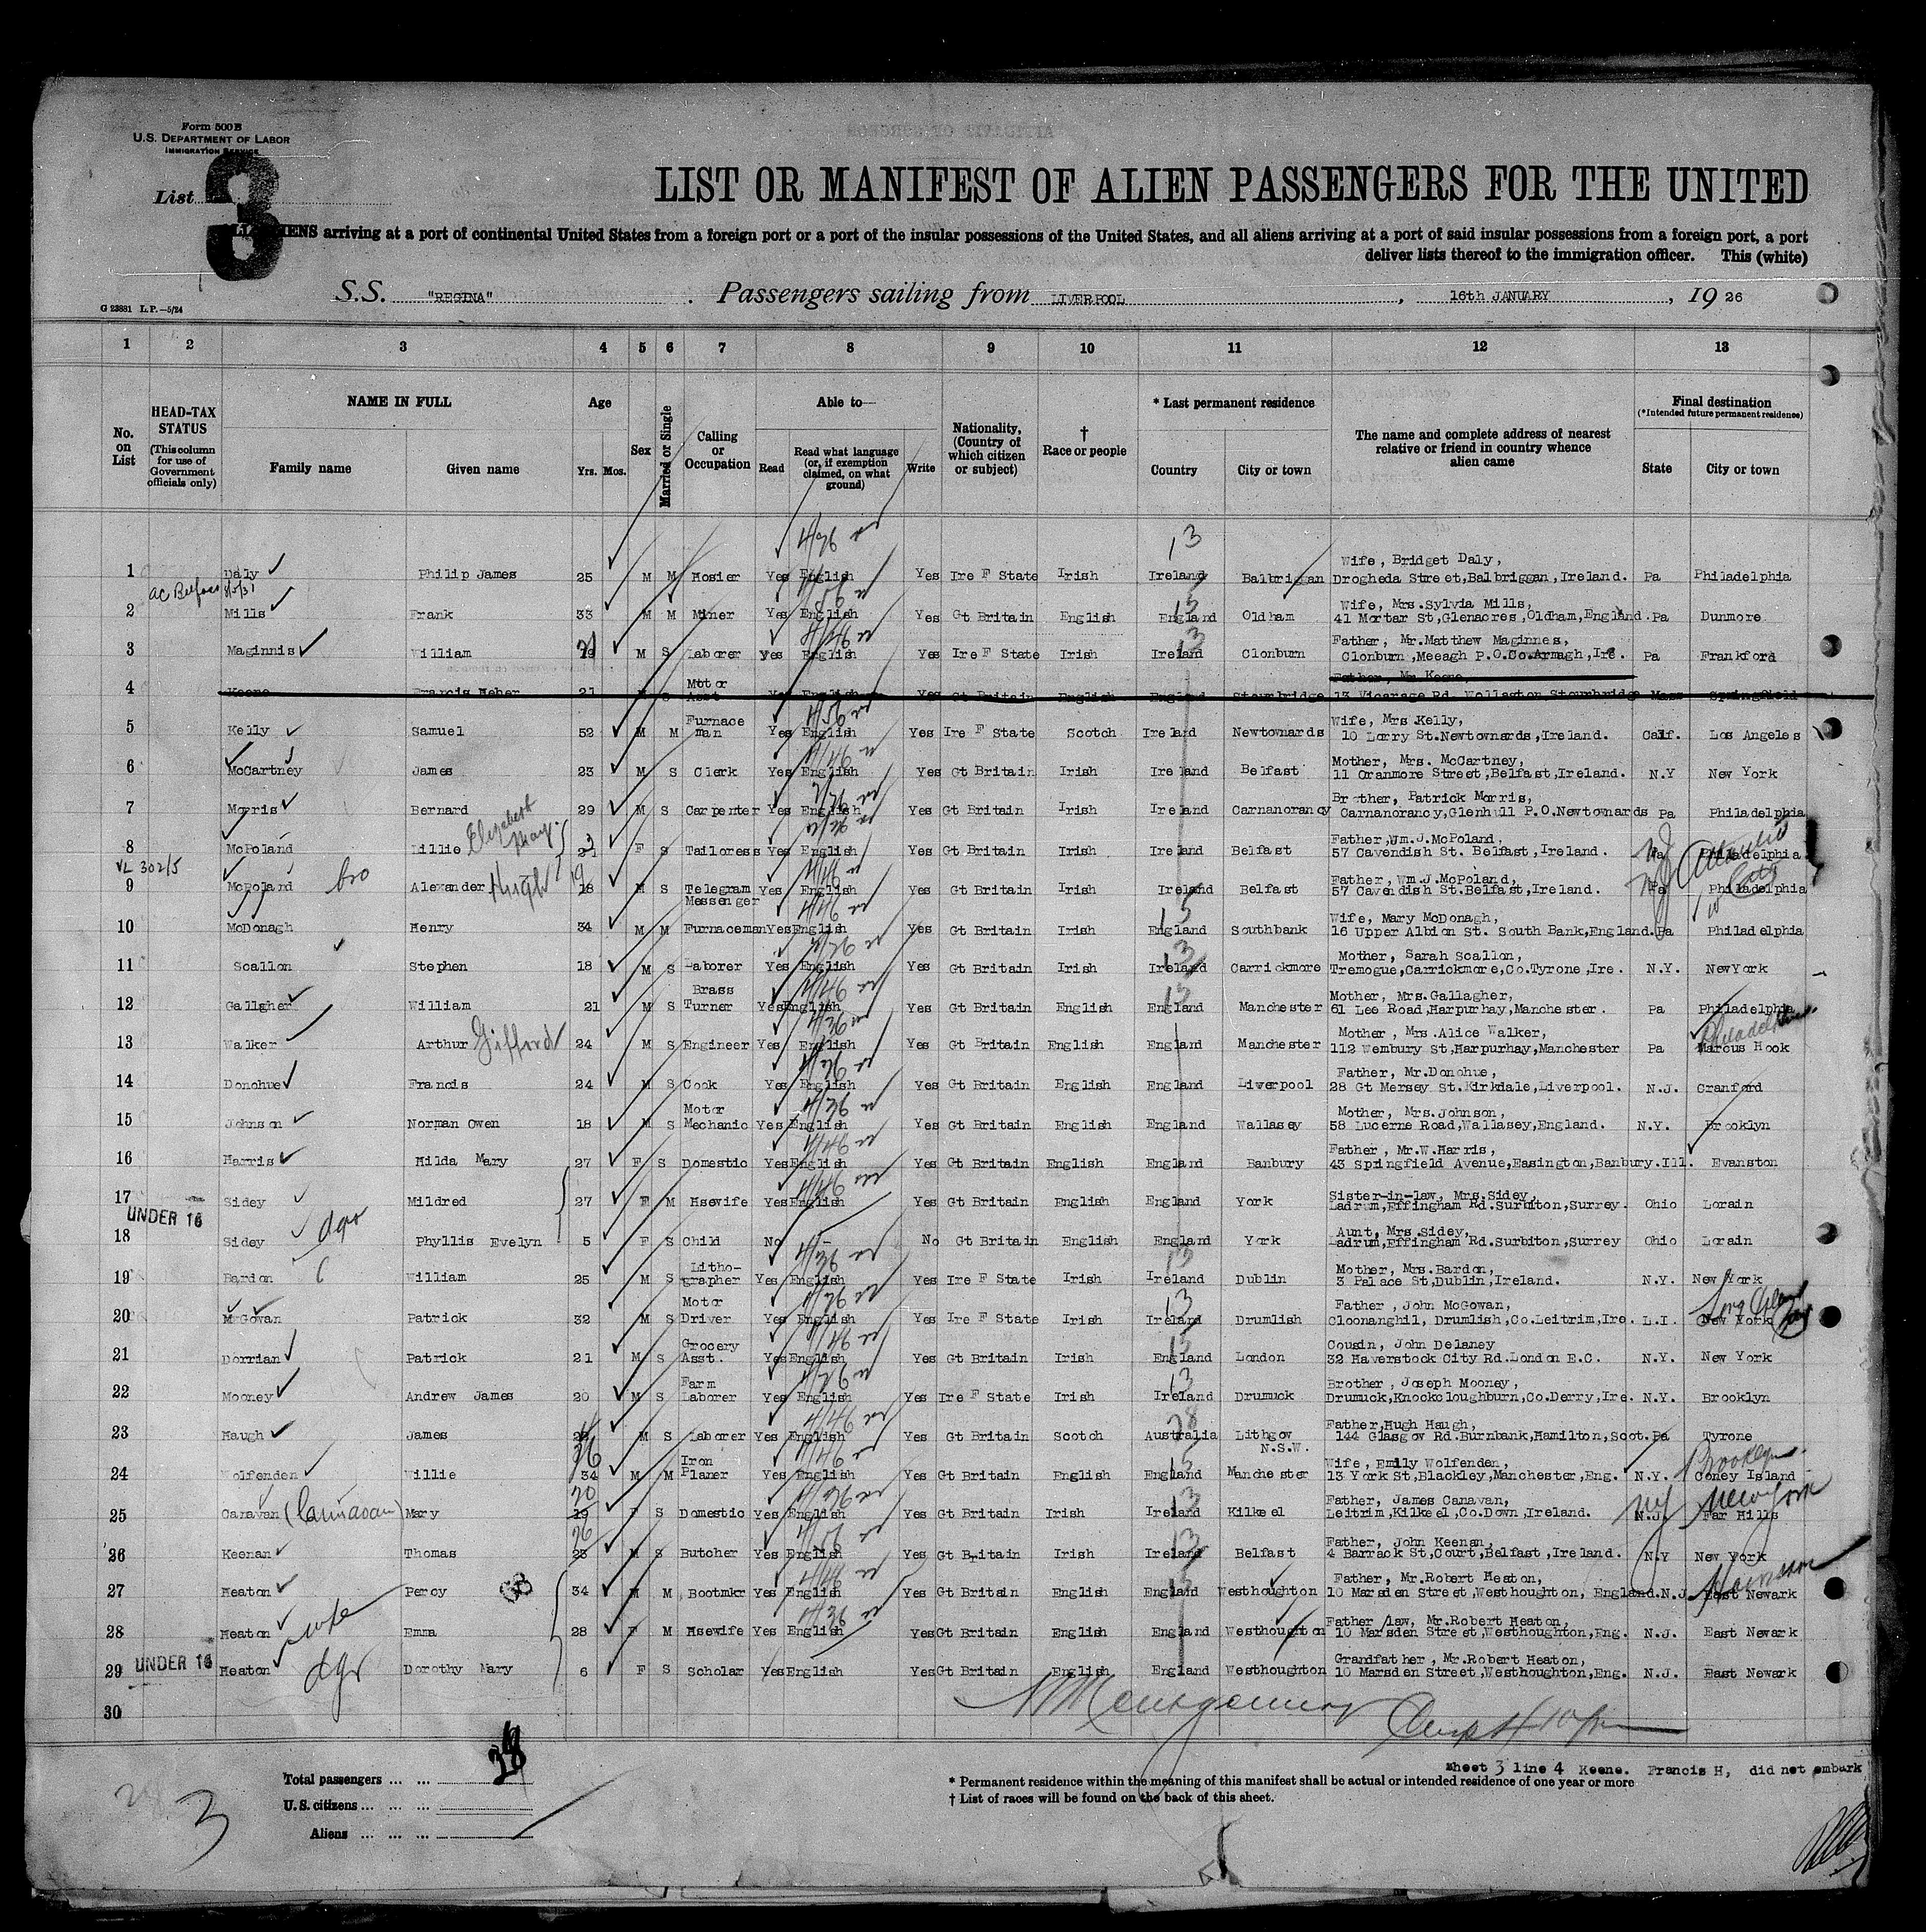 Form 500 B
U.S. DEPARTMENT OF LABOR
IMMIGRATION SERVICE
List 3
LIST OR MANIFEST OF ALIEN PASSENGERS FOR THE UNITED
ALIENS arriving at a port of continental United States from a foreign port or a port of the insular possessions of the United States, and all aliens arriving at a port of said insular possessions from a foreign port, a port
deliver lists thereof to the immigration officer. This (white)
S.S. "REGINA" . Passengers sailing from LIVERPOOL , 16th JANUARY , 19 26
G 23881 L.P.—5/24
1 2 3 4 5 6 7 8 9 10 11 12 13
No. on List
HEAD-TAX STATUS (This column for use of Government officials only)
NAME IN FULL Family name Given name
Age Yrs. Mos.
Sex
Married or Single
Calling or Occupation
Able to— Read Read what language (or, if exemption claimed, on what ground) Write
Nationality, (Country of which citizen or subject)
† Race or people
* Last permanent residence Country City or town
The name and complete address of nearest relative or friend in country whence alien came
Final destination (*Intended future permanent residence) State City or town
Wife, Bridget Daly,
1 Daly Philip James 25 M M Hosier Yes English Yes Ire F State Irish Ireland Balbriggan Drogheda Street,Balbriggan,Ireland. Pa Philadelphia
Wife, Mrs.Sylvia Mills,
2 Mills Frank 33 M M Miner Yes English Yes Gt Britain English England Oldham 41 Mortar St,Glenacres,Oldham,England. Pa Dunmore
Father, Mr.Matthew Maginnes,
3 Maginnis William 21 M S Laborer Yes English Yes Ire F State Irish Ireland Clonburn Clonburn,Meeagh P.O.Co.Armagh,Ire. Pa Frankford
Motor Father, Mr Keene,
4 Keene Francis Heber 21 M S Asst Yes English Yes Gt Britain English England Stourbridge 13 Vicarage Rd Wollaston Stourbridge Mass Springfield
Furnace Wife, Mrs Kelly,
5 Kelly Samuel 52 M M man Yes English Yes Ire F State Scotch Ireland Newtownards 10 Lorry St.Newtownards,Ireland. Calif. Los Angeles
Mother, Mrs. McCartney,
6 McCartney James 23 M S Clerk Yes English Yes Gt Britain Irish Ireland Belfast 11 Oranmore Street,Belfast,Ireland. N.Y New York
Brother, Patrick Morris,
7 Morris Bernard 29 M S Carpenter Yes English Yes Gt Britain Irish Ireland Carnanorancy Carnanorancy,Glenhull P.O.Newtownards Pa Philadelphia
Father,Wm.J.McPoland,
8 McPoland Lillie Elizabeth May F S Tailoress Yes English Yes Gt Britain Irish Ireland Belfast 57 Cavendish St. Belfast,Ireland. Pa Philadelphia.
VL 302/5 Father, Wm.J.McPoland,
9 McPoland bro Alexander Hugh 18 M S Telegram Messenger Yes English Yes Gt Britain Irish Ireland Belfast 57 Cavendish St.Belfast,Ireland. Pa Philadelphia
Wife, Mary McDonagh,
10 McDonagh Henry 34 M M Furnaceman Yes English Yes Gt Britain Irish England Southbank 16 Upper Albion St. South Bank,England. Pa Philadelphia
Mother, Sarah Scallon,
11 Scallon Stephen 18 M S Laborer Yes English Yes Gt Britain Irish Ireland Carrickmore Tremogue,Carrickmore,Co.Tyrone,Ire. N.Y. NewYork
Brass Mother, Mrs.Gallagher,
12 Gallgher William 21 M S Turner Yes English Yes Gt Britain English England Manchester 61 Lee Road,Harpurhay,Manchester. Pa Philadelphia
Mother, Mrs.Alice Walker, Philadelphia
13 Walker Arthur Gifford 24 M S Engineer Yes English Yes Gt Britain English England Manchester 112 Wembury St,Harpurhay,Manchester Pa Marcus Hook
Father, Mr.Donohue,
14 Donohue Francis 24 M S Cook Yes English Yes Gt Britain English England Liverpool 28 Gt Mersey St.Kirkdale,Liverpool. N.J. Cranford
Motor Mother, Mrs.Johnson,
15 Johnson Norman Owen 18 M S Mechanic Yes English Yes Gt Britain English England Wallasey 58 Lucerne Road,Wallasey,England. N.Y. Brooklyn
Father, Mr.W.Harris,
16 Harris Hilda Mary 27 F S Domestic Yes English Yes Gt Britain English England Banbury 43 Springfield Avenue,Easington,Banbury. Ill. Evanston
Sister-in-law, Mrs.Sidey,
17 Sidey Mildred 27 F M Hsewife Yes English Yes Gt Britain English England York Ladrum,Effingham Rd.Surbiton,Surrey. Ohio Lorain
UNDER 16 Aunt, Mrs.Sidey,
18 Sidey dgr Phyllis Evelyn 5 F S Child No No Gt Britain English England York Ladrum,Effingham Rd.Surbiton,Surrey Ohio Lorain
Litho- Mother, Mrs.Bardon,
19 Bardon William 25 M S grapher Yes English Yes Ire F State Irish Ireland Dublin 3 Palace St,Dublin,Ireland. N.Y. New York
Motor Father, John McGowan, Long Island
20 McGowan Patrick 32 M S Driver Yes English Yes Ire F State Irish Ireland Drumlish Cloonanghil, Drumlish,Co.Leitrim,Ire. L.I. New York
Grocery Cousin, John Delaney
21 Dorrian Patrick 21 M S Asst. Yes English Yes Gt Britain Irish England London 32 Haverstock City Rd.London E.C. N.Y. New York
Farm Brother, Joseph Mooney,
22 Mooney Andrew James 20 M S Laborer Yes English Yes Ire F State Irish Ireland Drumuck Drumuck,Knockoloughburn,Co.Derry,Ire. N.Y. Brooklyn
Father,Hugh Haugh,
23 Haugh James M S Laborer Yes English Yes Gt Britain Scotch Australia Lithgow N.S.W. 144 Glasgow Rd.Burnbank,Hamilton,Scot. Pa Tyrone
36 Iron Wife, Emily Wolfenden, Brooklyn
24 Wolfenden Willie 34 M M Planer Yes English Yes Gt Britain English England Manchester 13 York St,Blackley,Manchester,Eng. N.Y. Coney Island
20 Father, James Canavan, NY New York
25 Canavan (Cannavan) Mary 19 F S Domestic Yes English Yes Gt Britain Irish Ireland Kilkeel Leitrim,Kilkeel,Co.Down,Ireland. N.J. Far Hills
26 Father, John Keenan,
26 Keenan Thomas 23 M S Butcher Yes English Yes Gt Britain Irish Ireland Belfast 4 Barrack St,Court,Belfast,Ireland. N.Y New York
Father, Mr.Robert Heaton, Harrison
27 Heaton Percy 34 M M Bootmkr Yes English Yes Gt Britain English England Westhoughton 10 Marsden Street,Westhoughton, England. N.J. East Newark
Father /law, Mr.Robert Heaton,
28 Heaton wife Emma 28 F M Hsewife Yes English Yes Gt Britain English England Westhoughton 10 Marsden Street,Westhoughton,Eng. N.J. East Newark
Grandfather, Mr.Robert Heaton,
29 UNDER 16 Heaton dgr Dorothy Mary 6 F S Scholar Yes English Yes Gt Britain English England Westhoughton 10 Marsden Street,Westhoughton,Eng. N.J. East Newark
30
Montgomery
Total passengers ... ...
U.S. citizens ... ... ...
Aliens ... ... ...
3
Sheet 3 line 4 Keene. Francis H, did not embark
* Permanent residence within the meaning of this manifest shall be actual or intended residence of one year or more
† List of races will be found on the back of this sheet.